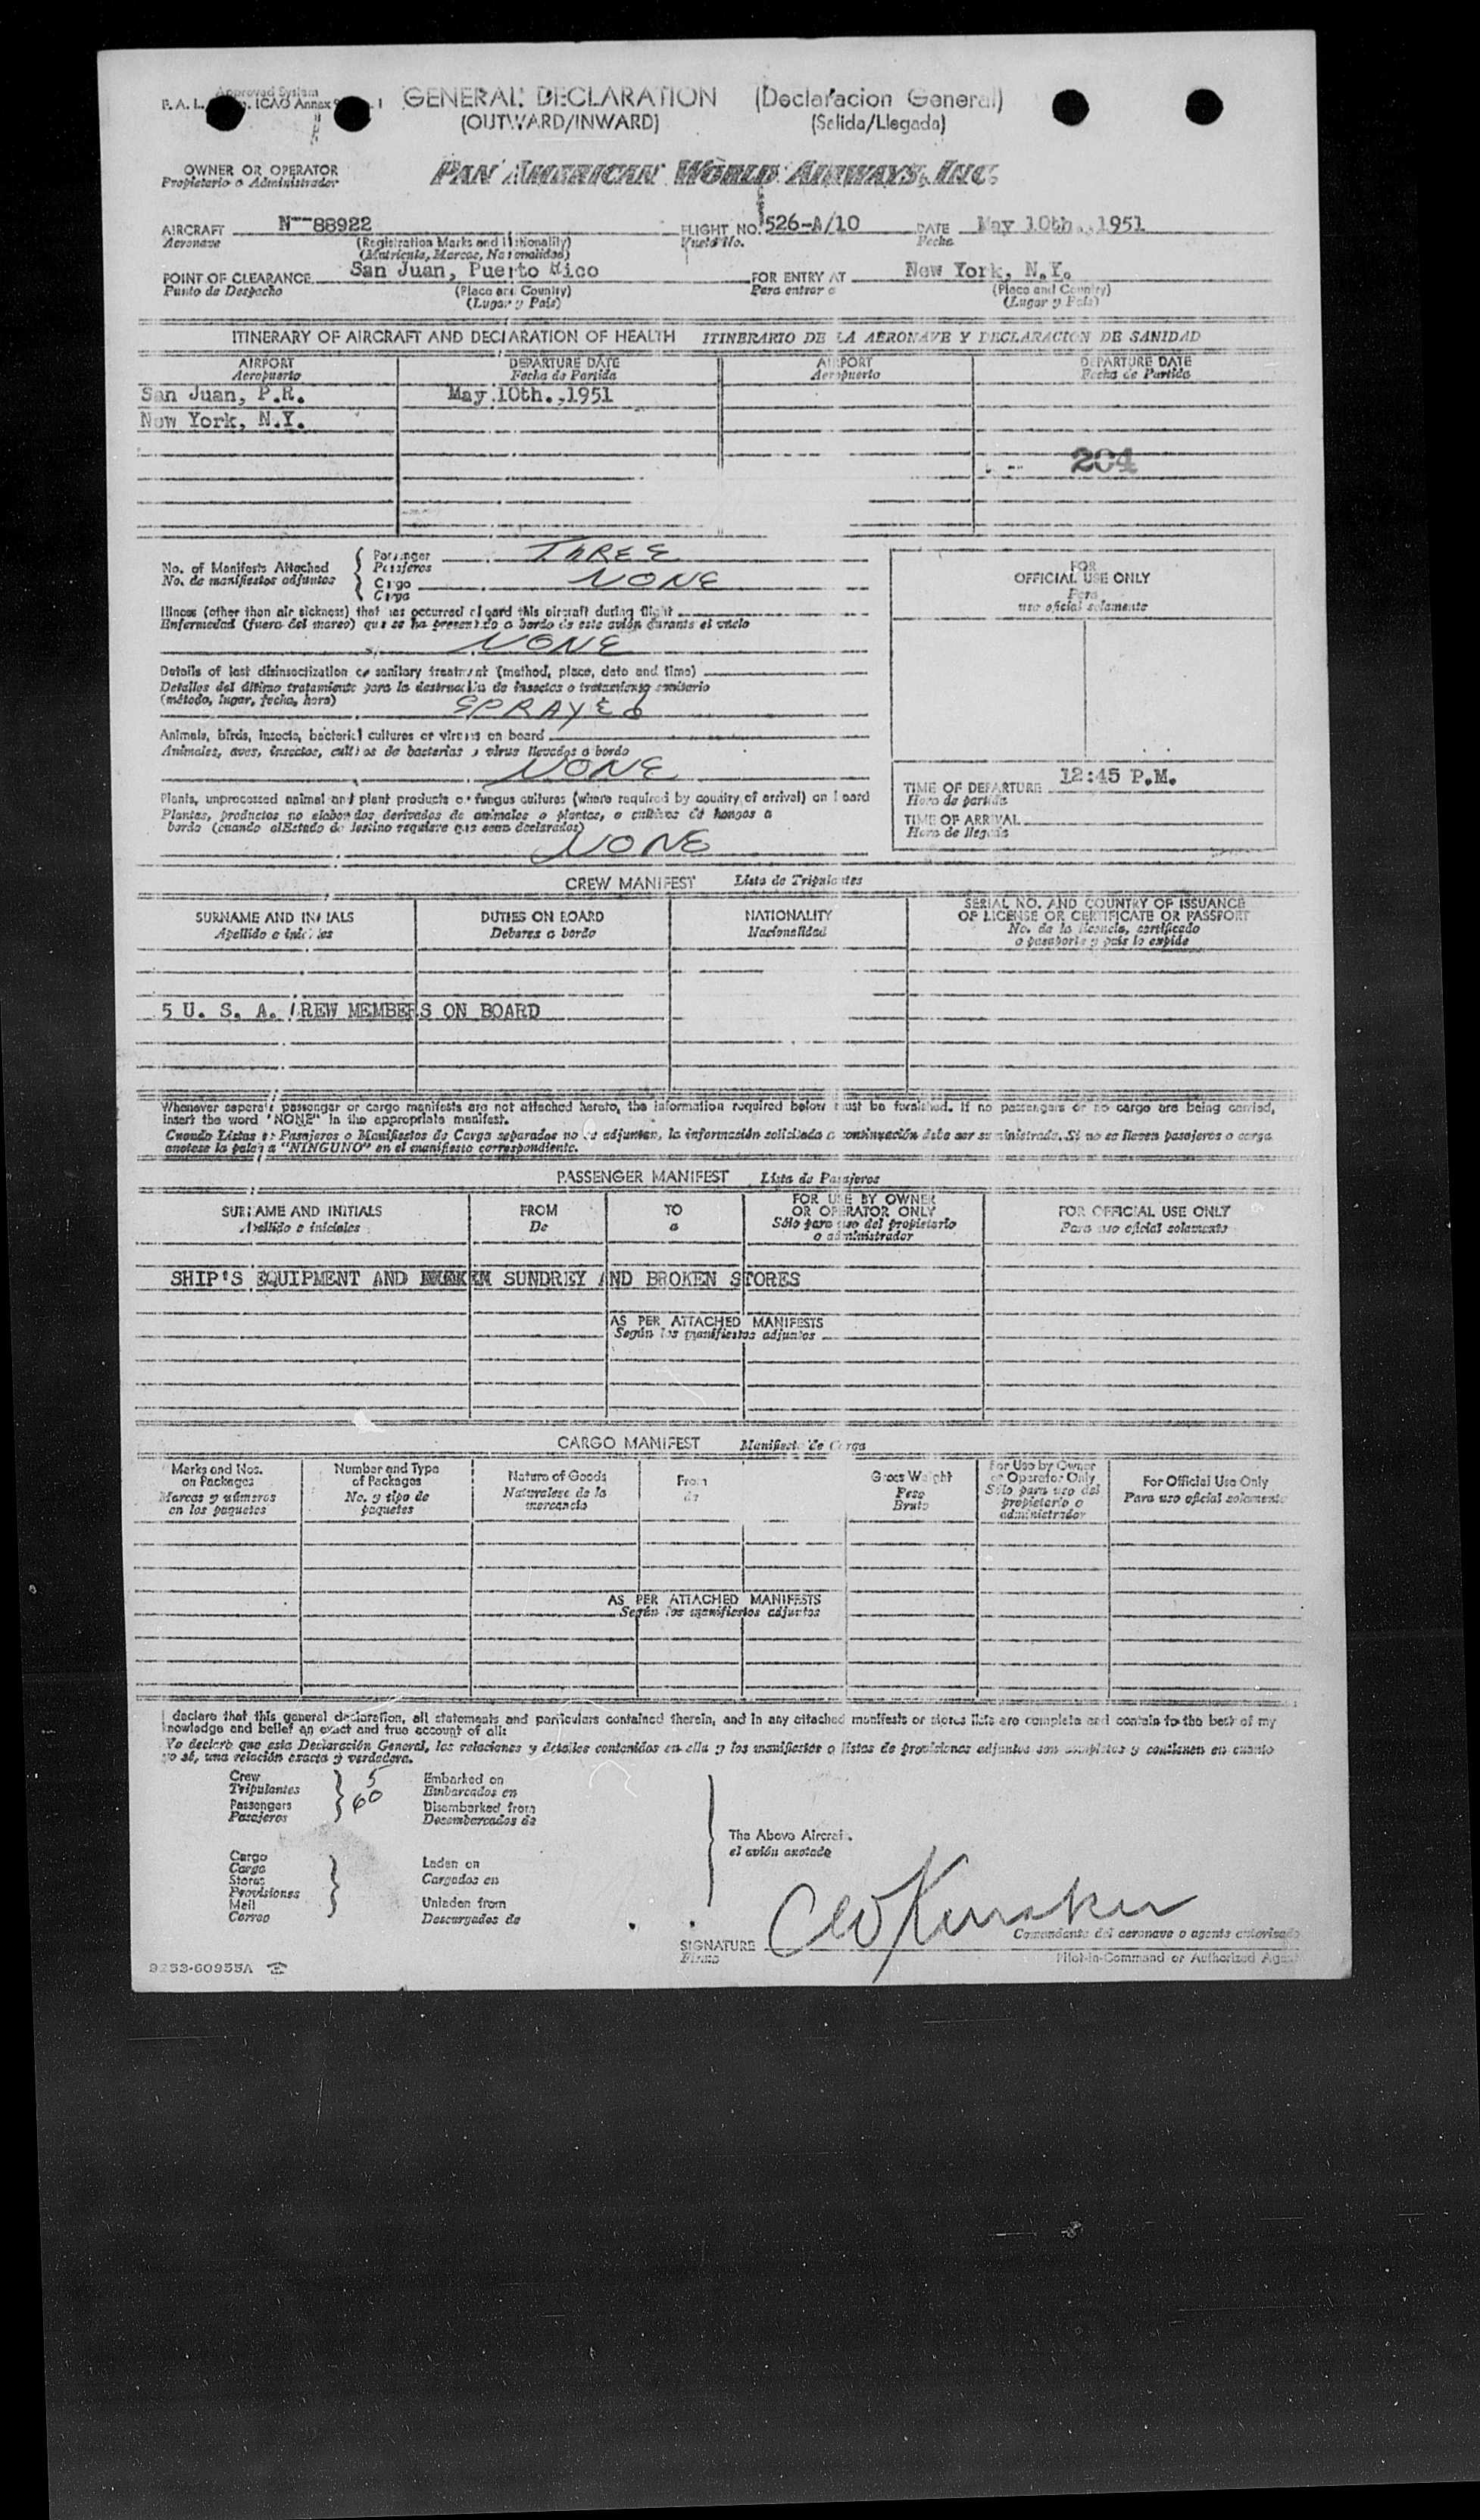 Approved System
F. A. L. ICAO Annex 9 1
GENERAL DECLARATION (Declaracion General)
(OUTWARD/INWARD) (Salida/Llegada)
OWNER OR OPERATOR
Propietario o Administrador
PAN AMERICAN WORLD AIRWAYS, INC.
AIRCRAFT N--88922 FLIGHT NO. 526-A/10 DATE May 10th.,1951
Aeronave (Registration Marks and Nationality) Vuelo No. Fecha
(Matricula, Marcas, Nacionalidad)
POINT OF CLEARANCE San Juan, Puerto Rico FOR ENTRY AT New York, N.Y.
Punto de Despacho (Place and Country) Para entrar a (Place and Country)
(Lugar y País) (Lugar y País)
ITINERARY OF AIRCRAFT AND DECLARATION OF HEALTH ITINERARIO DE LA AERONAVE Y DECLARACION DE SANIDAD
AIRPORT DEPARTURE DATE AIRPORT DEPARTURE DATE
Aeropuerto Fecha de Partida Aeropuerto Fecha de Partida
San Juan, P.R. May 10th.,1951
New York, N.Y.
204
No. of Manifests Attached { Passenger THREE
No. de manifiestos adjuntos Pasajeros
Cargo NONE
Carga
Illness (other than air sickness) that has occurred aboard this aircraft during flight
Enfermedad (fuera del mareo) que se ha presentado a bordo de este avión durante el vuelo
NONE
Details of last disinsectization or sanitary treatment (method, place, date and time)
Detalles del último tratamiento para la destrucción de insectos o tratamiento sanitario
(método, lugar, fecha, hora)
SPRAYED
Animals, birds, insects, bacterial cultures or viruses on board
Animales, aves, insectos, cultivos de bacterias y virus llevados a bordo
NONE
Plants, unprocessed animal and plant products or fungus cultures (where required by country of arrival) on board
Plantas, productos no elaborados derivados de animales o plantas, o cultivos de hongos a
bordo (cuando el Estado de destino requiere que sean declarados)
NONE
FOR
OFFICIAL USE ONLY
Para
uso oficial solamente
TIME OF DEPARTURE 12:45 P.M.
Hora de partida
TIME OF ARRIVAL
Hora de llegada
CREW MANIFEST Lista de Tripulantes
SURNAME AND INITIALS DUTIES ON BOARD NATIONALITY SERIAL NO. AND COUNTRY OF ISSUANCE
OF LICENSE OR CERTIFICATE OR PASSPORT
Apellido e iniciales Deberes a bordo Nacionalidad No. de la licencia, certificado
o pasaporte y país lo expide
5 U. S. A. CREW MEMBERS ON BOARD
Whenever separate passenger or cargo manifests are not attached hereto, the information required below must be furnished. If no passengers or no cargo are being carried,
insert the word "NONE" in the appropriate manifest.
Cuando Listas de Pasajeros o Manifiestos de Carga separados no se adjuntan, la información solicitada a continuación debe ser suministrada. Si no se llevan pasajeros o carga
anotese la palabra "NINGUNO" en el manifiesto correspondiente.
PASSENGER MANIFEST Lista de Pasajeros
SURNAME AND INITIALS FROM TO FOR USE BY OWNER FOR OFFICIAL USE ONLY
OR OPERATOR ONLY
Apellido e iniciales De a Sólo para uso del propietario Para uso oficial solamente
o administrador
SHIP'S EQUIPMENT AND SUNDREY AND BROKEN STORES
AS PER ATTACHED MANIFESTS
Según los manifiestos adjuntos
CARGO MANIFEST Manifiesto de Carga
Marks and Nos. Number and Type Nature of Goods From Gross Weight For Use by Owner For Official Use Only
on Packages of Packages Naturaleza de la de Peso or Operator Only Para uso oficial solamente
Marcas y números No. y tipo de mercancía Bruto Sólo para uso del
en los paquetes paquetes propietario o
administrador
AS PER ATTACHED MANIFESTS
Según los manifiestos adjuntos
I declare that this general declaration, all statements and particulars contained therein, and in any attached manifests or stores lists are complete and contain to the best of my
knowledge and belief an exact and true account of all:
Yo declaro que esta Declaración General, las relaciones y detalles contenidos en ella y los manifiestos o listas de provisiones adjuntos son completos y contienen en cuanto
yo sé, una relación exacta y verdadera.
Crew 5 Embarked on
Tripulantes Embarcados en
Passengers 60 Disembarked from
Pasajeros Desembarcados de
The Above Aircraft.
el avión anotado
Cargo
Carga Laden on
Stores Cargados en
Provisiones
Mail Unladen from
Correo Descargados de
SIGNATURE
Firma
Comandante del aeronave o agente autorizado
Pilot-in-Command or Authorized Agent
9253-60955A